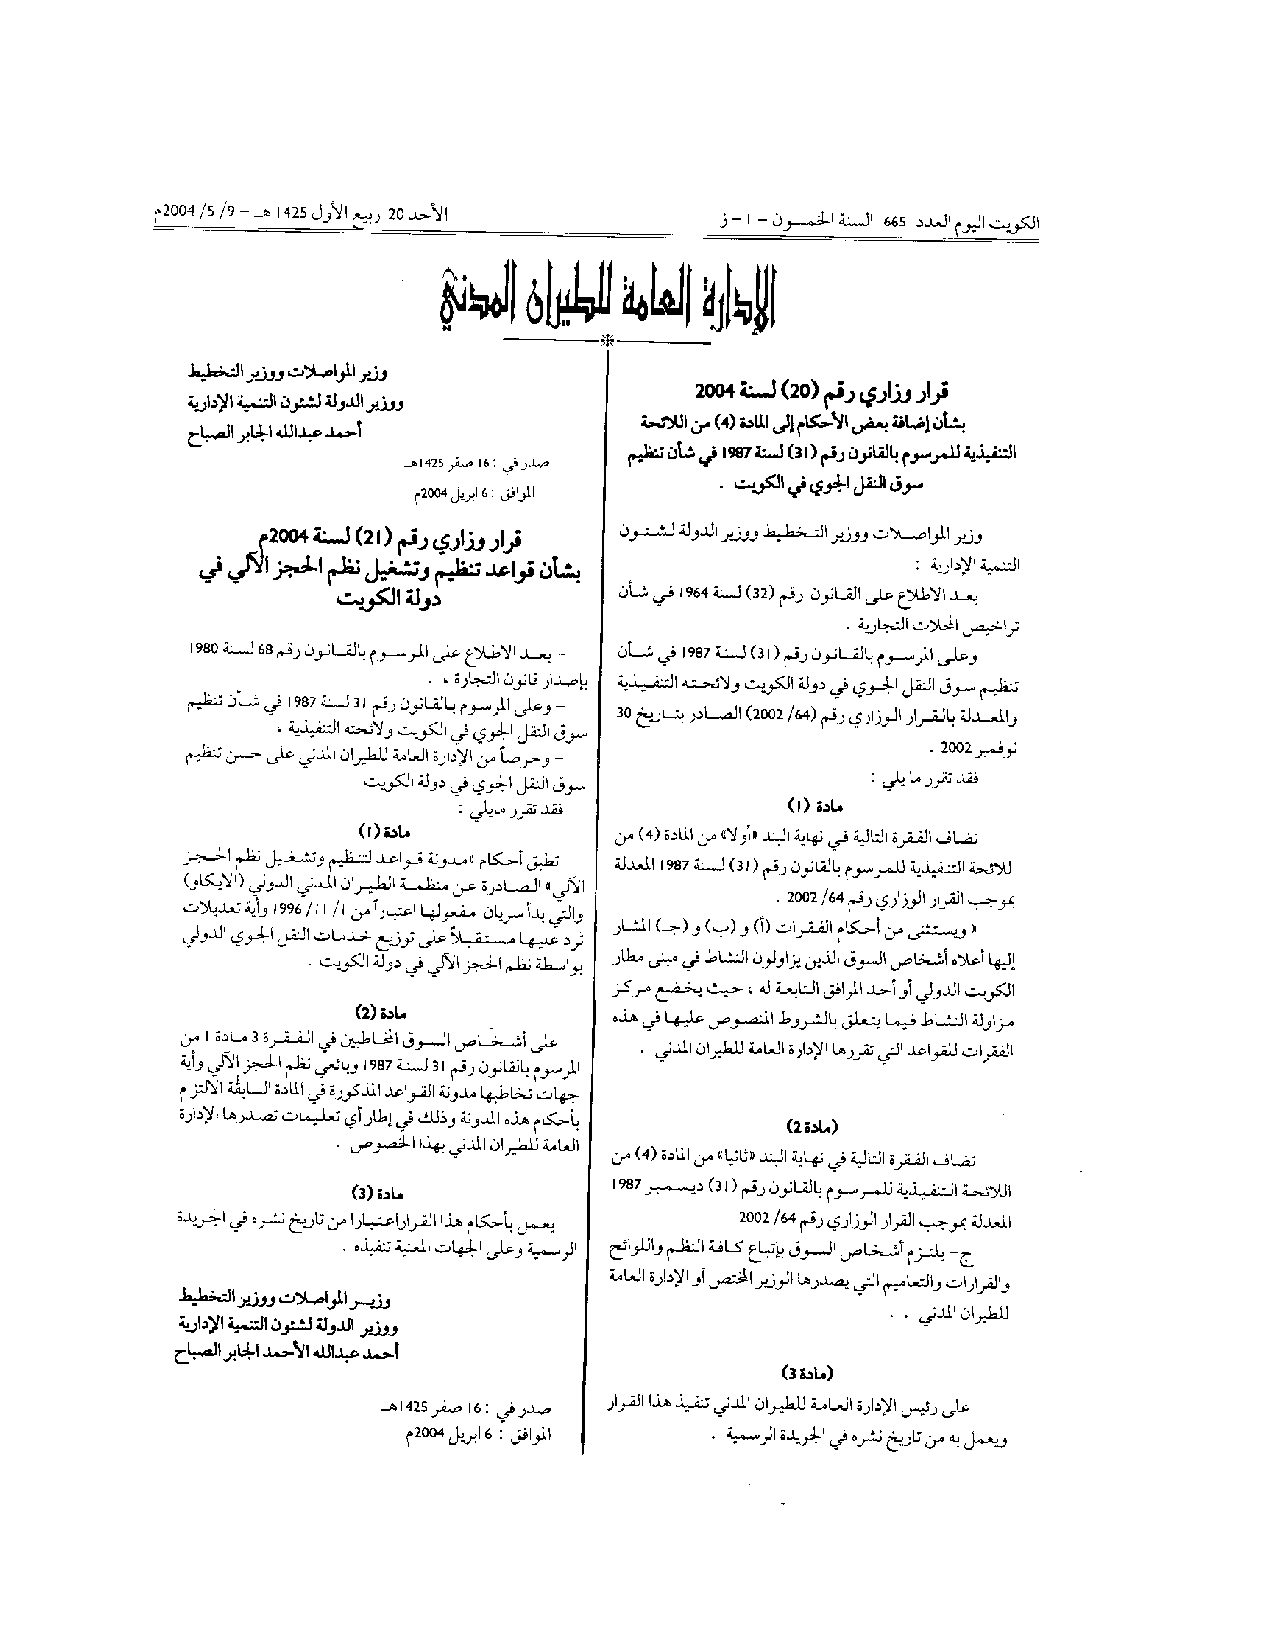 الكويت اليوم العدد 665 السنة الخمسون - ١ - ز
الأحد 20 ربيع الأول 1425 هـ - 9/ 5/ 2004م
الإدارة العامة للطيران المدني
قرار وزاري رقم (20) لسنة 2004
بشأن إضافة بعض الأحكام إلى المادة (4) من اللائحة
التنفيذية للمرسوم بالقانون رقم (31) لسنة 1987 في شأن تنظيم
سوق النقل الجوي في الكويت .
وزير المواصلات ووزير التخطيط ووزير الدولة لشئون
التنمية الإدارية :
بعد الاطلاع على القانون رقم (32) لسنة 1964 في شأن
تراخيص المحلات التجارية .
وعلى المرسوم بالقانون رقم (31) لسنة 1987 في شأن
تنظيم سوق النقل الجوي في دولة الكويت ولائحته التنفيذية
والمعدلة بالقرار الوزاري رقم (64/ 2002) الصادر بتاريخ 30
نوفمبر 2002 .
فقد تقرر ما يلي :
مادة (١)
تضاف الفقرة التالية في نهاية البند «أولا» من المادة (4) من
للائحة التنفيذية للمرسوم بالقانون رقم (31) لسنة 1987 المعدلة
بموجب القرار الوزاري رقم 64/ 2002 .
« ويستثنى من أحكام الفقرات (أ) و (ب) و (جـ) المشار
إليها أعلاه أشخاص السوق الذين يزاولون النشاط في مبنى مطار
الكويت الدولي أو أحد المرافق التابعة له ، حيث يخضع مركز
مزاولة النشاط فيما يتعلق بالشروط المنصوص عليها في هذه
الفقرات للقواعد التي تقررها الإدارة العامة للطيران المدني .
(مادة 2)
تضاف الفقرة التالية في نهاية البند «ثانيا» من المادة (4) من
اللائحة التنفيذية للمرسوم بالقانون رقم (31) ديسمبر 1987
المعدلة بموجب القرار الوزاري رقم 64/ 2002
ج- يلتزم أشخاص السوق بإتباع كافة النظم واللوائح
والقرارات والتعاميم التي يصدرها الوزير المختص أو الإدارة العامة
للطيران المدني . .
(مادة 3)
على رئيس الإدارة العامة للطيران المدني تنفيذ هذا القرار
ويعمل به من تاريخ نشره في الجريدة الرسمية .
وزير المواصلات ووزير التخطيط
ووزير الدولة لشئون التنمية الإدارية
أحمد عبدالله الجابر الصباح
صدر في : 16 صفر 1425هـ
الموافق : 6 ابريل 2004م
قرار وزاري رقم (21) لسنة 2004م
بشأن قواعد تنظيم وتشغيل نظم الحجز الآلي في
دولة الكويت
- بعد الاطلاع على المرسوم بالقانون رقم 68 لسنة 1980
بإصدار قانون التجارة ، .
- وعلى المرسوم بالقانون رقم 31 لسنة 1987 في شأن تنظيم
سوق النقل الجوي في الكويت ولائحته التنفيذية ،
- وحرصاً من الإدارة العامة للطيران المدني على حسن تنظيم
سوق النقل الجوي في دولة الكويت
فقد تقرر مايلي :
مادة (١)
تطبق أحكام «مدونة قواعد لتنظيم وتشغيل نظم الحجز
الآلي» الصادرة عن منظمة الطيران المدني الدولي (الايكاو)
والتي بدأ سريان مفعولها اعتباراً من 1/ 11/ 1996 وأية تعديلات
ترد عليها مستقبلاً على توزيع خدمات النقل الجوي الدولي
بواسطة نظم الحجز الآلي في دولة الكويت .
مادة (2)
على أشخاص السوق المخاطبين في الفقرة 3 مادة 1 من
المرسوم بالقانون رقم 31 لسنة 1987 وبائعي نظم الحجز الآلي وأية
جهات تخاطبها مدونة القواعد المذكورة في المادة السابقة الالتزام
بأحكام هذه المدونة وذلك في إطار أي تعليمات تصدرها الإدارة
العامة للطيران المدني بهذا الخصوص .
مادة (3)
يعمل بأحكام هذا القرار اعتبارا من تاريخ نشره في الجريدة
الرسمية وعلى الجهات المعنية تنفيذه .
وزير المواصلات ووزير التخطيط
ووزير الدولة لشئون التنمية الإدارية
أحمد عبدالله الأحمد الجابر الصباح
صدر في : 16 صفر 1425هـ
الموافق : 6 ابريل 2004م